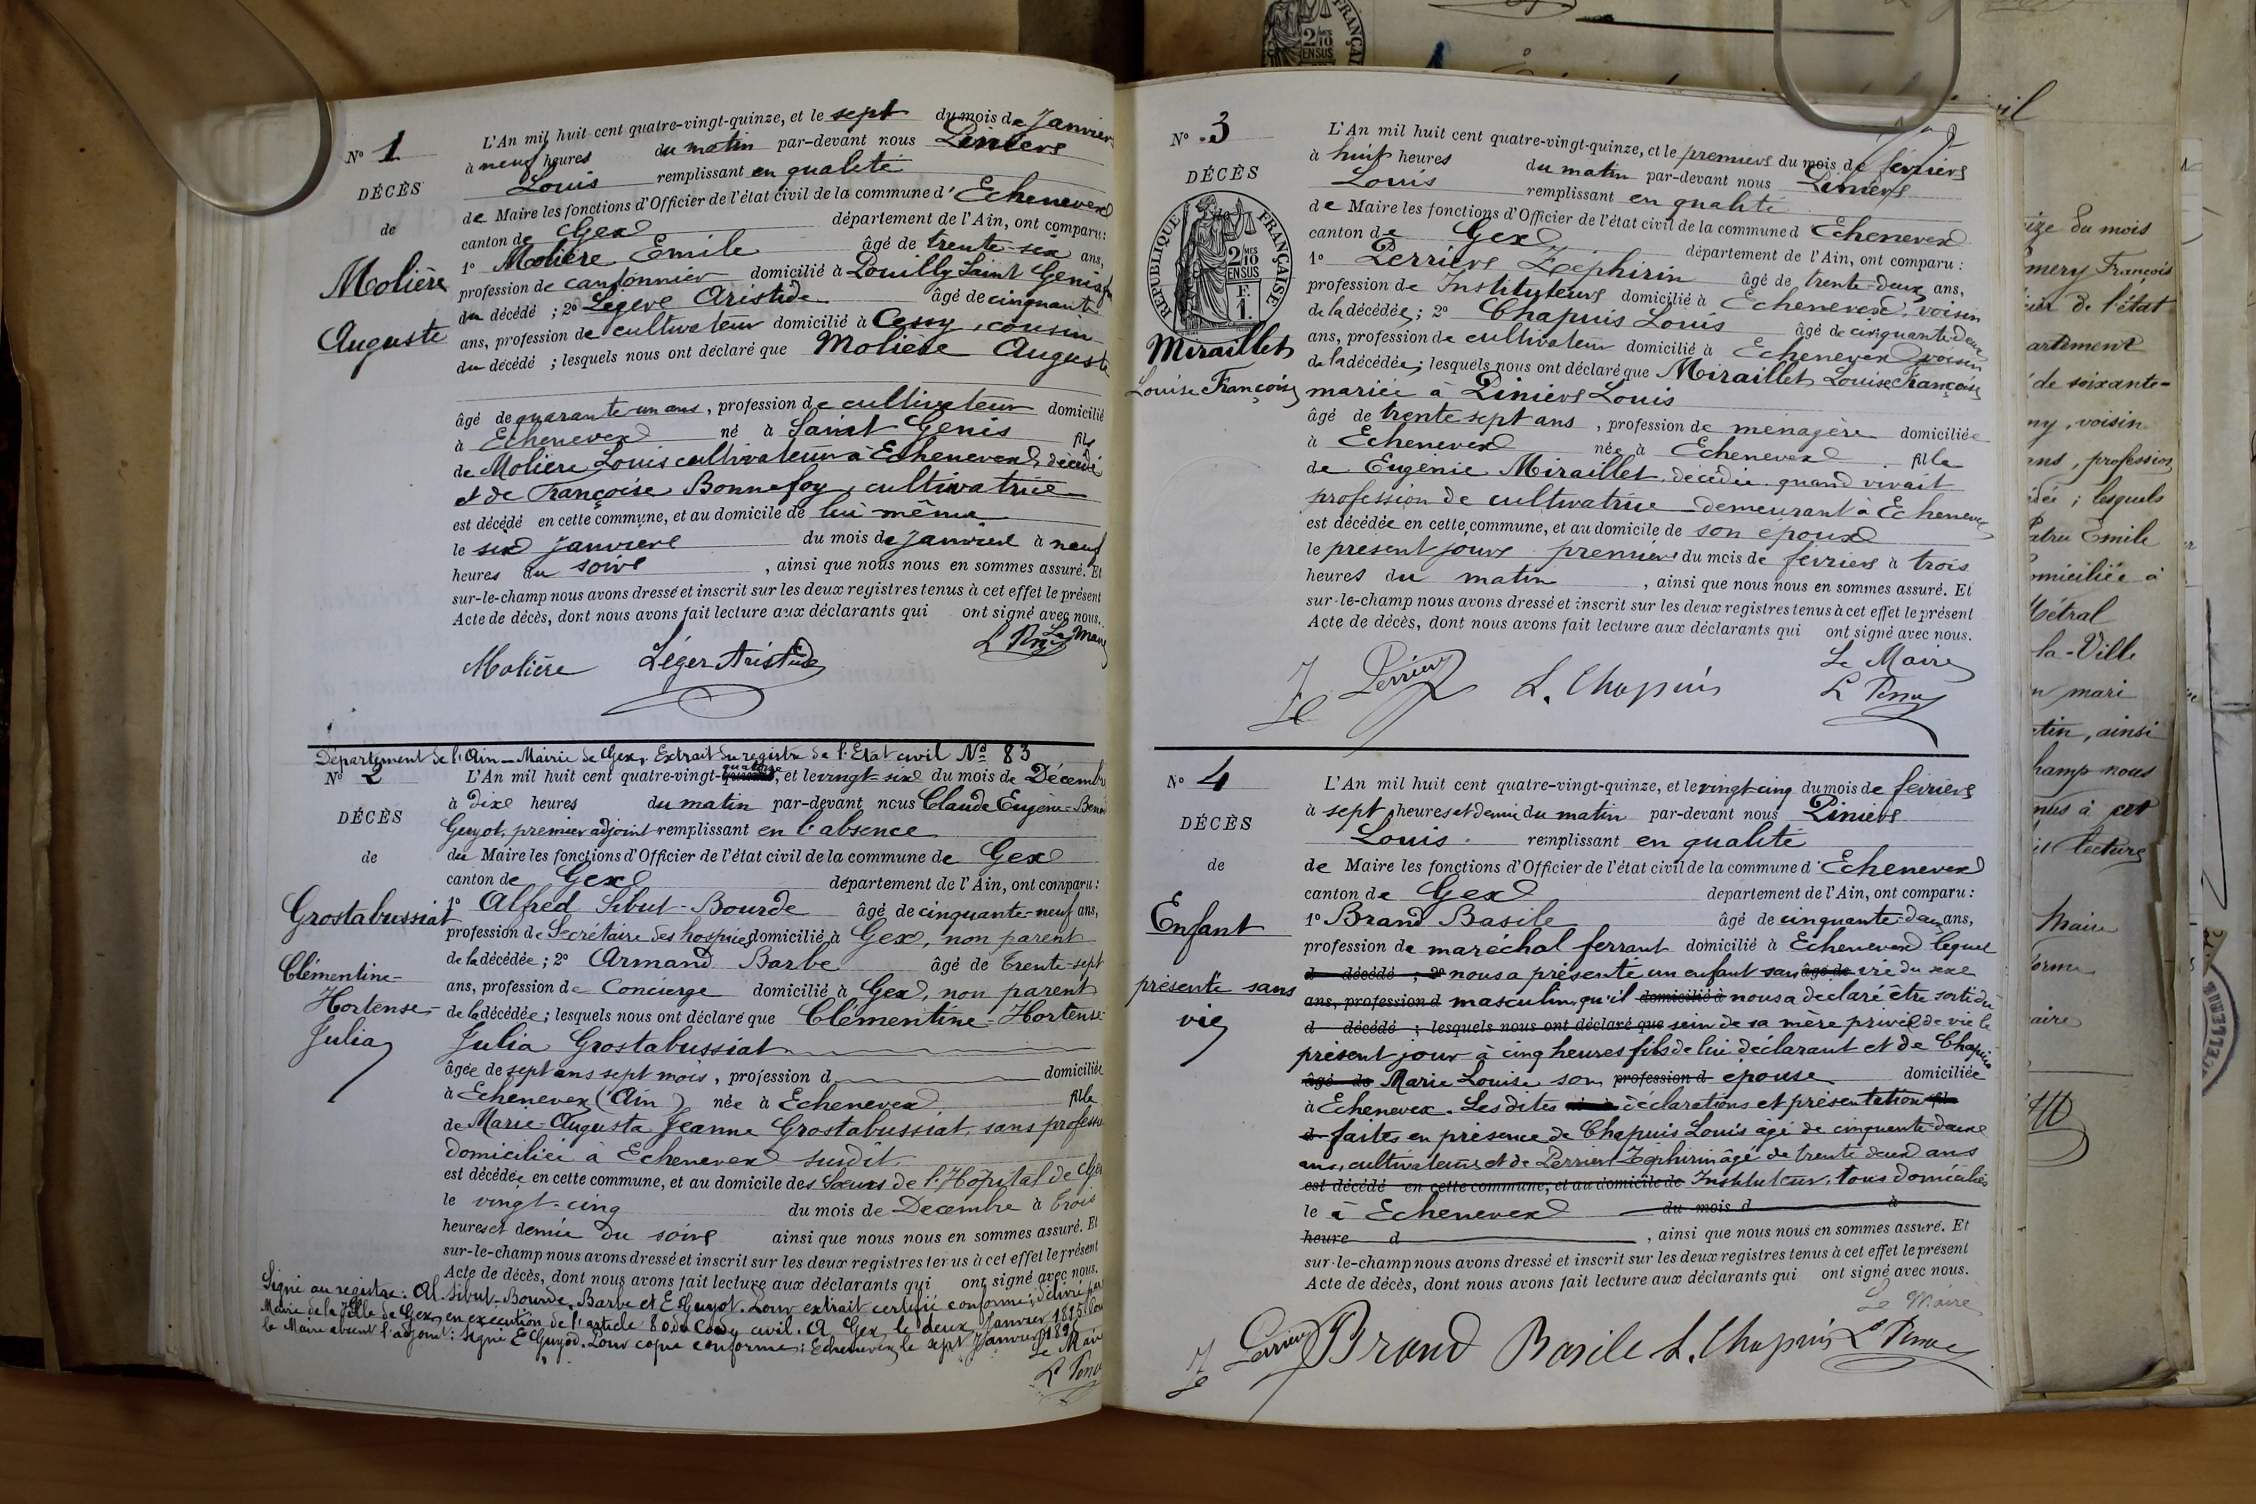 N° 1
DÉCÈS
de
Molière
Auguste
L'An mil huit cent quatre-vingt-quinze, et le sept du mois de Janvier
à neuf heures du matin par-devant nous Piniers
Louis remplissant en qualité
de Maire les fonctions d'Officier de l'état civil de la commune d'Echenevex
canton de Gex département de l'Ain, ont comparu:
1° Molière Emile âgé de trente-six ans,
profession de cantonnier domicilié à Pouilly Saint Genis
du décédé ; 2° Légeve Aristide âgé de cinquante
ans, profession de cultivateur domicilié à Cessy, cousin
du décédé ; lesquels nous ont déclaré que Molière Auguste
âgé de quarante un ans, profession de cultivateur domicilié
à Echenevex né à Saint Genis fils
de Molière Louis cultivateur à Echenevex, décédé
et de Françoise Bonnefoy, cultivatrice
est décédé en cette commune, et au domicile de lui même
le six Janviers du mois de Janvier à neuf
heures du soire , ainsi que nous nous en sommes assuré. Et
sur-le-champ nous avons dressé et inscrit sur les deux registres tenus à cet effet le présent
Acte de décès, dont nous avons fait lecture aux déclarants qui ont signé avec nous.
Le Maire
Molière Léger Aristide
Département de l'Ain - Mairie de Gex, Extrait du registre de l'Etat civil N° 83
N° 2
DÉCÈS
de
Grostabussiat
Clémentine-
Hortense-
Julia
L'An mil huit cent quatre-vingt-quatorze, et le vingt-six du mois de Décembre
à dix heures du matin par-devant nous Claude Eugène-Benoi
Guyot, premier adjoint remplissant en l'absence
du Maire les fonctions d'Officier de l'état civil de la commune de Gex
canton de Gex département de l'Ain, ont comparu:
1° Alfred Sibut-Bourde âgé de cinquante-neuf ans,
profession de Secrétaire des hospices domicilié à Gex, non parent
de la décédée ; 2° Armand Barbe âgé de Trente-sept
ans, profession de Concierge domicilié à Gex, non parent
de la décédée ; lesquels nous ont déclaré que Clémentine-Hortense-
Julia Grostabussiat
âgée de sept ans sept mois, profession d domiciliée
à Echenevex (Ain) née à Echenevex fille
de Marie-Augusta Jeanne Grostabussiat, sans profess
domiciliée à Echenevex susdit
est décédée en cette commune, et au domicile des Sœurs de l'Hôpital de Gex
le vingt-cinq du mois de Décembre à trois
heures et demie du soire ainsi que nous nous en sommes assuré. Et
sur-le-champ nous avons dressé et inscrit sur les deux registres tenus à cet effet le présent
Acte de décès, dont nous avons fait lecture aux déclarants qui ont signé avec nous.
Signé au registre: Al. Sibut-Bourde, Barbe et E Guyot. Pour extrait certifié conforme, délivré par
Mairie de la ville de Gex, en exécution de l'article 80 du Code civil. A Gex le deux Janvier 1895. Pour
le Maire absent l'adjoint: Signé E Guyot. Pour copie conforme: Echenevex, le sept Janvier 1895
Le Maire
N° 3
DÉCÈS
de
RÉPUBLIQUE FRANÇAISE
2/10 MES EN SUS
F. 1.
Miraillet
Louise Françoise
L'An mil huit cent quatre-vingt-quinze, et le premiers du mois de févriers
à huit heures du matin par-devant nous Piniers
Louis remplissant en qualité
de Maire les fonctions d'Officier de l'état civil de la commune d Echenevex
canton de Gex département de l'Ain, ont comparu :
1° Perriers Zéphirin âgé de trente-deux ans,
profession de Instituteurs domicilié à Echenevex, voisin
de la décédée ; 2° Chapuis Louis âgé de cinquante-deux
ans, profession de cultivateur domicilié à Echenevex voisin
de la décédée ; lesquels nous ont déclaré que Miraillet Louise Françoise
mariée à Piniers Louis
âgé de trente sept ans, profession de ménagère domiciliée
à Echenevex née à Echenevex fille
de Eugénie Miraillet, décédée quand vivait
profession de cultivatrice demeurant à Echenevex
est décédée en cette commune, et au domicile de son époux
le présent jours premiers du mois de févriers à trois
heures du matin , ainsi que nous nous en sommes assuré. Et
sur-le-champ nous avons dressé et inscrit sur les deux registres tenus à cet effet le présent
Acte de décès, dont nous avons fait lecture aux déclarants qui ont signé avec nous.
Le Maire
Perrier L. Chapuis
N° 4
DÉCÈS
de
Enfant
présenté sans
vie
L'An mil huit cent quatre-vingt-quinze, et le vingt-cinq du mois de févriers
à sept heures et demie du matin par-devant nous Piniers
Louis remplissant en qualité
de Maire les fonctions d'Officier de l'état civil de la commune d'Echenevex
canton de Gex département de l'Ain, ont comparu :
1° Brand Basile âgé de cinquante-deux ans,
profession de maréchal ferrant domicilié à Echenevex lequel
d décédé ; 2° nous a présenté un enfant sans âgé de vie du sexe
ans, profession d masculin, qu'il domicilié à nous a déclaré être sorti du
d décédé ; lesquels nous ont déclaré que sein de sa mère privé de vie le
présent jour à cinq heures fils de lui déclarant et de Chapuis
âgé de Marie Louise son profession d épouse domiciliée
à Echenevex. Les dites déclarations et présentation
d faites en présence de Chapuis Louis âgé de cinquante-deux
ans, cultivateurs et de Perrier Zéphirin âgé de trente deux ans
est décédé en cette commune, et au domicile de Instituteur, tous domiciliés
le à Echenevex du mois d à
heure d , ainsi que nous nous en sommes assuré. Et
sur-le-champ nous avons dressé et inscrit sur les deux registres tenus à cet effet le présent
Acte de décès, dont nous avons fait lecture aux déclarants qui ont signé avec nous.
Le Maire
Perrier Brand Basile L. Chapuis
du mois
François
de l'état
artement
de soixante-
ny, voisin
ans, profession
lesquels
Emile
omiciliée à
Métral
la-Ville
mari
tin, ainsi
hamp nous
nus à cet
lecture
Maire
forme
aire